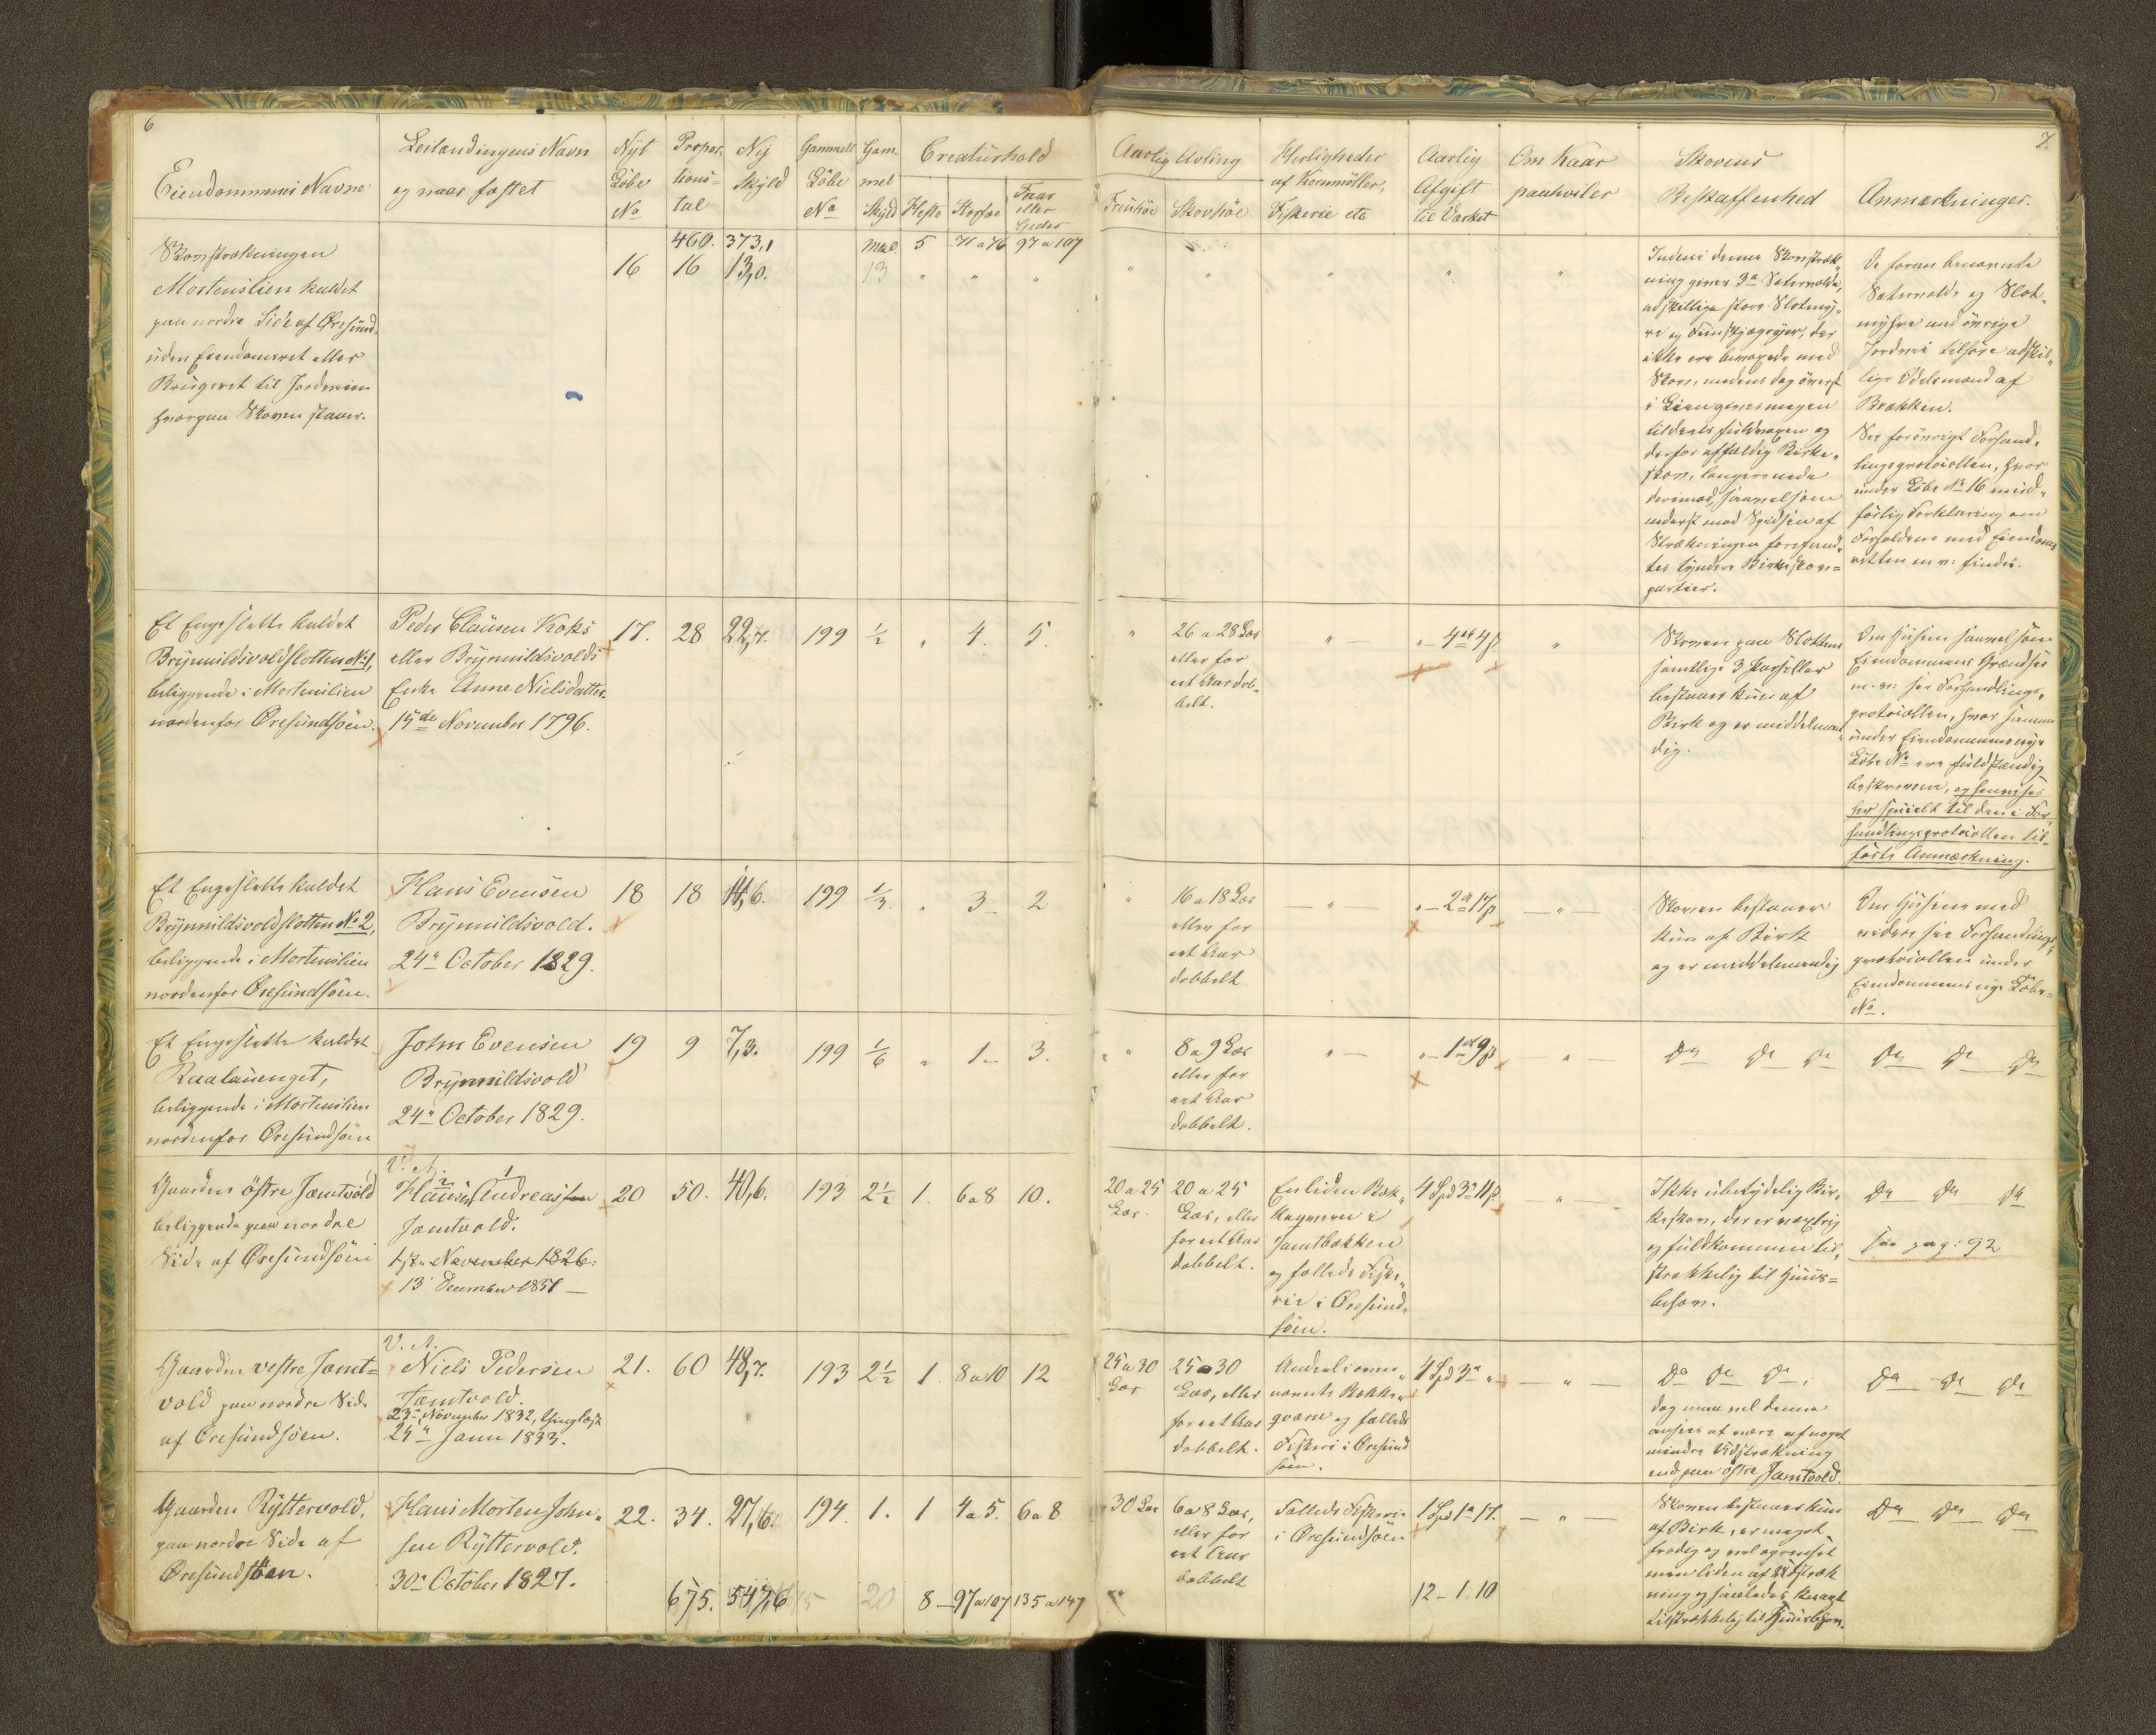 6
Eiendommens Navne
Leilændingens Navn
og naar fæstet
Nyt
Løbe
No
Propor-
tions-
tal
Ny
Skyld
Gammelt
Løbe
No
Gam-
mel
Skyld
Creaturhold
Heste
Storfæ
Faar
eller
Geder
460. 373,1 5 71 a 76 97 a 107
Skovstrækningen
Mortenslien kaldet
paa nordre Side af Øresund,
uden Eiendomsret eller
Brugsret til Jordveien
hvorpaa Skoven staaer.
16 16 13,0. 13 " " "
Et Engeslette kaldet
Brynnildsvoldsletten No 1,
beliggende i Mortenslien
nordenfor Øresundsøen.
Peder Clausen Koks
eller Brynnildsvolds
Enke Anne Nielsdatter
15de November 1796.
17. 28 22,7. 199 ½ " 4. 5.
Et Engeslette kaldet
Brynnildsvoldsletten No 2,
beliggende i Mortenslien
nordenfor Øresundsøen.
Hans Evensen
Brynnildsvold.
24de October 1829.
18 18 14,6. 199 ⅓. " 3 2
Et Engeslette kaldet
Raalauenget,
beliggende i Mortenslien
nordenfor Øresundsøen
John Evensen
Brynnildsvold
24de October 1829.
19 9 7,3. 199 ⅙ " 1 3.
Gaarden østre Jamtvold
beliggende paa nordre
Side af Øresundsøen
V. A.
2 1
Hansen Andreas
Jamtvold.
1ste November 1826.
13 December 1851
20 50. 40,6. 193 2½ 1. 6 a 8 10.
Gaarden vestre Jamt-
vold paa nordre Side
af Øresundsøen.
V. A.
Niels Pedersen
Jamtvold.
23de November 1832, thinglæst
25de Janu 1833.
21. 60 48,7. 193 2½ 1. 8 a 10 12
Gaarden Ryttervold,
paa nordre Side af
Øresundsøen.
Hans Morten John-
sen Ryttervold.
30de October 1827.
22. 34. 27,6. 194. 1. 1 4 a 5. 6 a 8
675. 547,6 20 8 97 a 107 135 a 147
7.
Aarlig Avling
Frøehøe
Skovhøe
Herligheder
af Kornmøller,
Fiskerie etc
Aarlig
Afgift
til Værket
Om Kaar
paahviler
Skovens
Beskaffenhed
Anmærkninger.
" " " " "
Indens denne Skovstræk-
ning gives 3de Sætervolde,
adskillige store Slotmy-
re og Finskjægryer, der
ikke ere bevoxede med
Skov, medens dog øverst
i Lien gives megen
tildeels fuldvoxen og
derfor affældig Birke-
skov, længere nede
derimod, saavelsom
nederst mod Spidsen af
Strækningen forefind-
tes tyndere Birkeskov-
partier.
De foran benævnte
Sætervolde og Slot-
myhre med øvrige
Jordvei tilhøre adskil-
lige Odelsmænd af
Brækken.
See forøvrigt Forhand-
lingsprotocollen, hvor
under Løbe No 16 vid-
løftig Forklaring om
Forholdene med Eiendoms
retten m. v. findes.
"
26 a 28 Læs
eller for
eet Aar dob-
belt.
" —
" — 4 ort 4 ß
"
Skoven paa Slettens
samtlige 3 Parseller
bestaaer kun af
Birk og er middelmaa-
dig.
Om Husene saavelsom
Eiendommens Grændser
m. v. see Forhandlings-
protocollen, hvor samme
under Eiendommens nye
Løbe No ere fuldstændig
beskreven, og henvises
her specielt til den i For-
handlingsprotocollen til-
førte Anmærkning.
"
16 a 18 Læs
eller for
eet Aar
dobbelt
— " —
" — 2 a 17 ß
— " —
Skoven bestaaer
kun af Birk
og er middelmaadig
Om Husene med
videre see Forhandlings-
protocollen under
Eiendommens nye Løbe-
No.
"
8 a 9 Læs
eller for
eet Aar
dobbelt.
" —
" — 1 ort 9 ß
" —
Do Do Do
Do Do Do
20 a 25
Læs.
20 a 25
Læs, eller
for eet Aar
dobbelt.
En liden Bæk-
kequærn i
Jamtbækken
og fælleds Fiske-
rie i Øresund-
søen.
4 Spd 3 a 11 ß
— " —
Ikke ubetydelig Bir-
keskov, der er vextrig
og fuldkommen til-
strækkelig til Huus-
behov.
Do Do Do
see pag: 92
25 a 30
Læs
25 a 30
Læs, eller
for eet Aar
dobbelt.
Andeel i oven-
nævnte Bække-
qværn og fælleds
Fiskeri i Øresund
søen.
4 Spd 3 a "
— " —
Do Do Do,
dog maa vel denne
ansees at være af noget
mindre Vidstrækning
end paa østre Jamtvold.
Do Do Do
30 Læs
6 a 8 Læs,
eller for
eet Aar
dobbelt
Fælleds Fiskerie
i Øresundsøen
1 Spd 1 a 17.
— " —
Skoven bestaaer kun
af Birk, er meget
frodig og vel agreeret
men liden af Udstræk
ning og saaledes knapt
tilstrækkelig til Huusbehov.
Do Do Do
12 - 1. 10